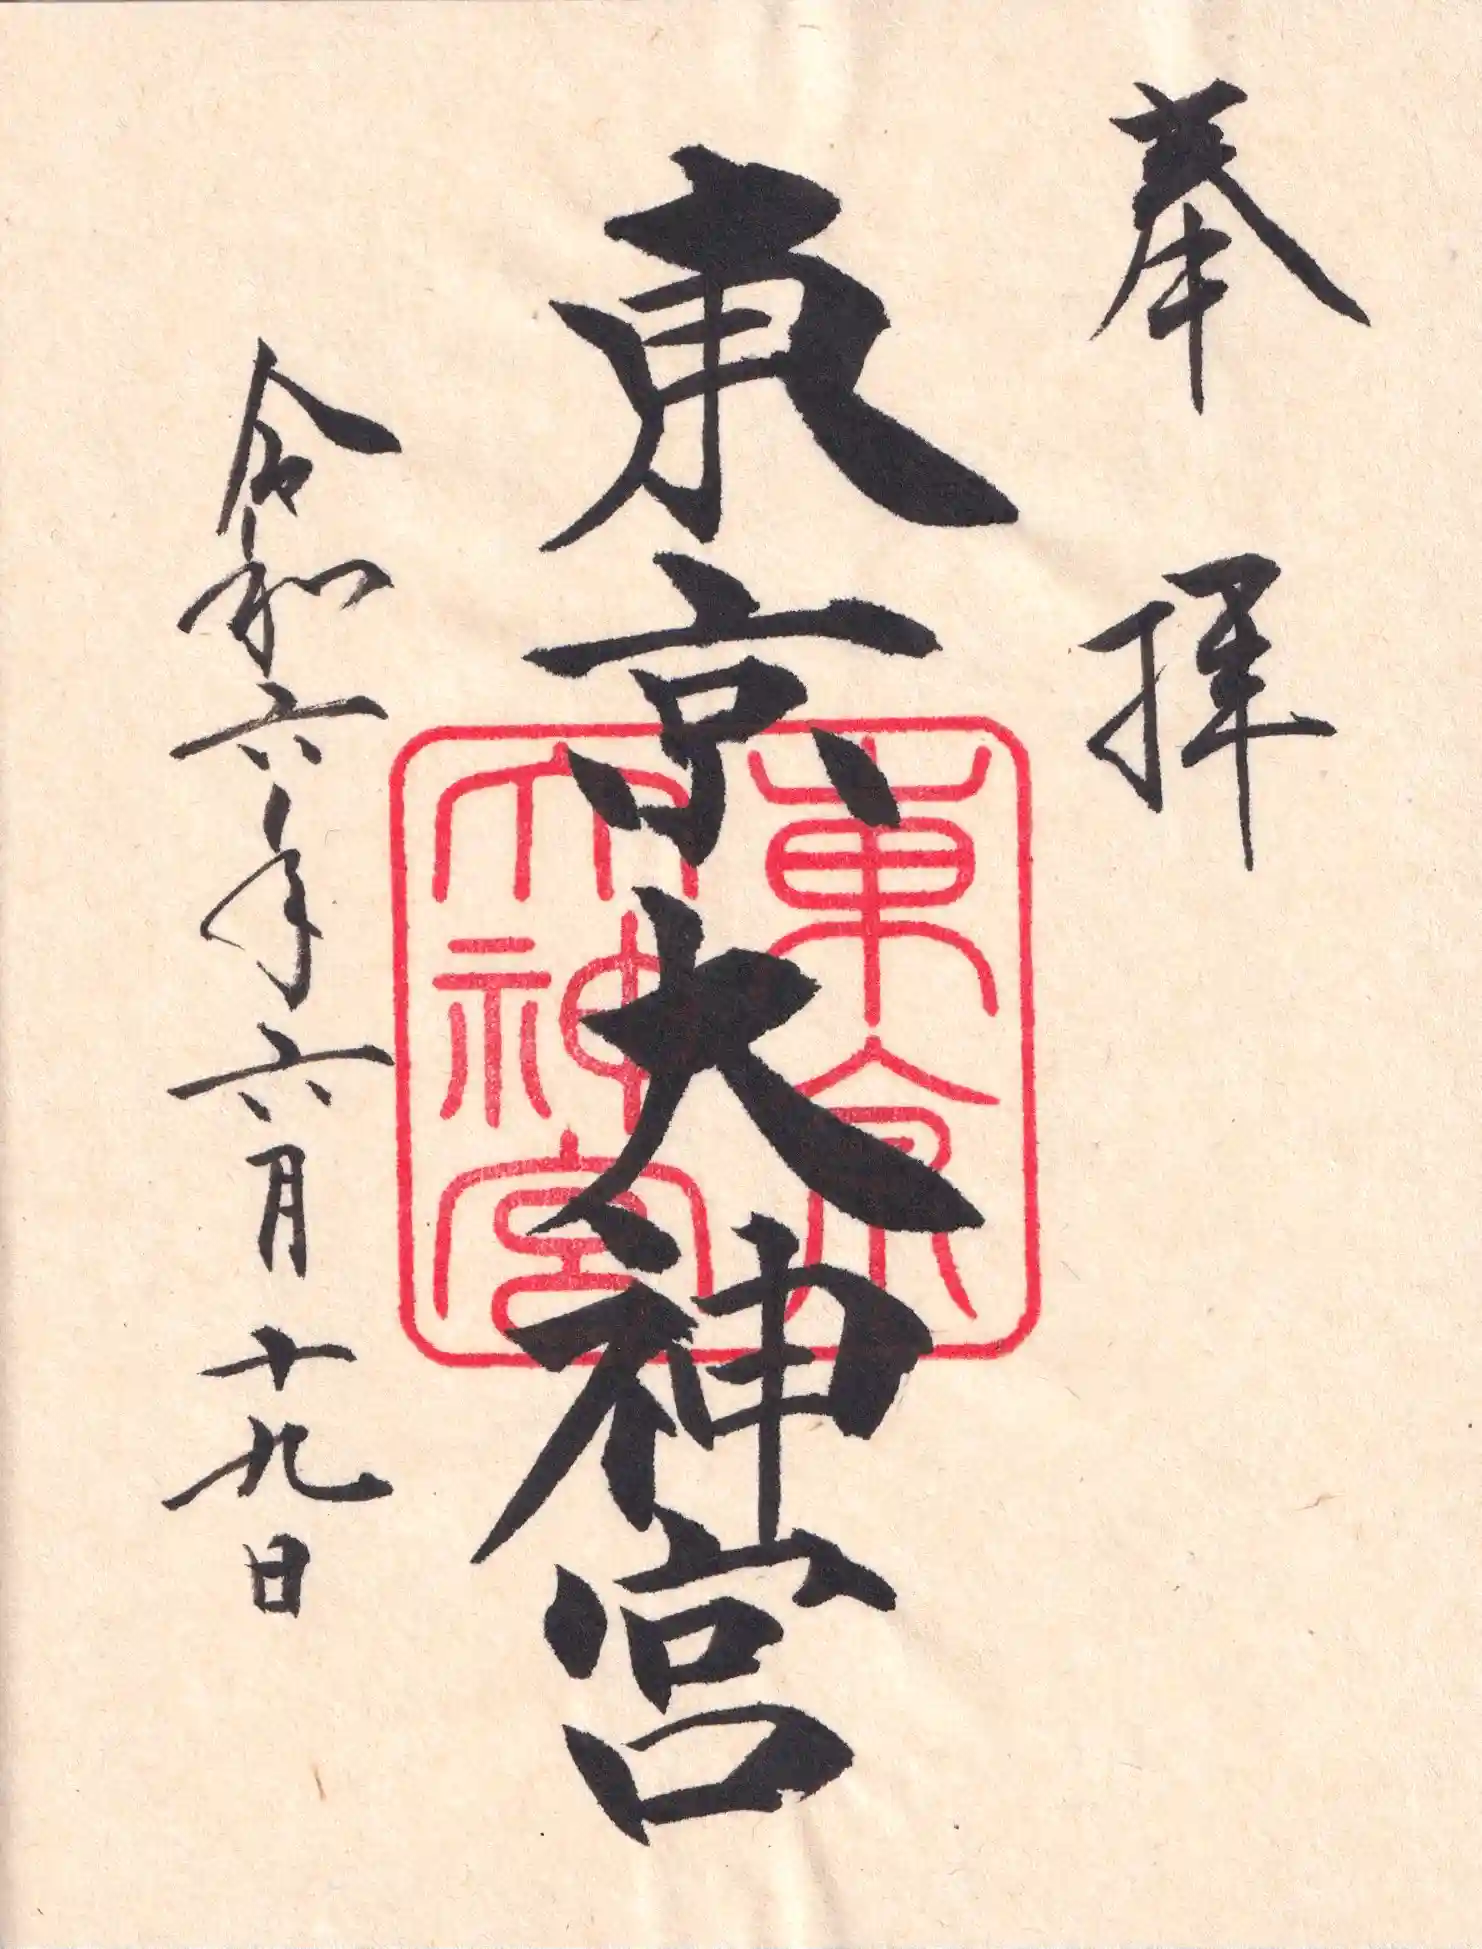 奉拝
東京大神宮
東京
大神宮
令和六年六月十九日